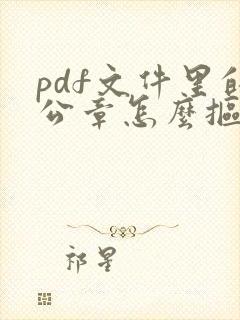 pdf文件里的
公章怎麼摳
祁星